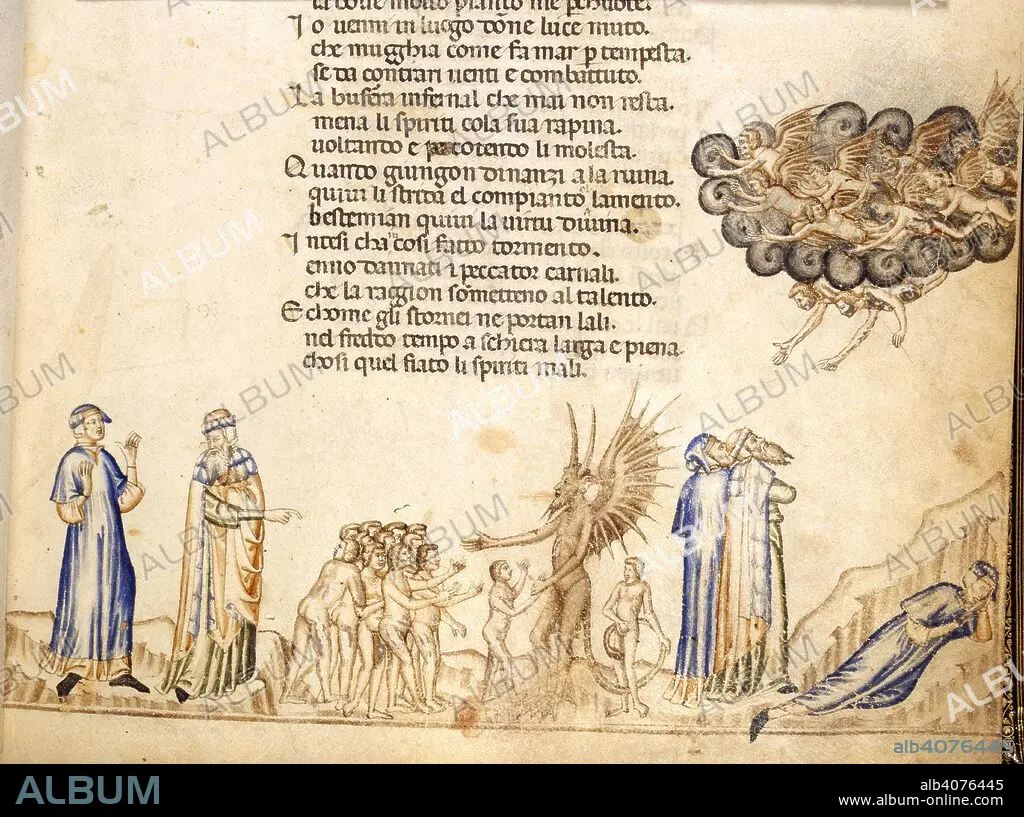 la dove molto pianto me percuote.
Io venni in luogo d'one luce muto.
che mugghia come fa mar p tempesta.
se da contrari venti e combattuto.
La bufera infernal che mai non resta.
mena li spiriti cola sua rapina.
voltando e percotendo li molesta.
Quando giungon dinanzi a la ruina.
quivi li strida el compianto lamento.
bestemian quivi la virtu divina.
Intesi cha cosi fatto tormento.
enno dannati i peccator carnali.
che la raggion sometteno al talento.
E chome gli stornei ne portan lali.
nel freddo tempo a schiera larga e piena.
chosi quel fiato li spiriti mali.
ALBUM
alb4076445
ALBUM
alb4076445
album-online.com